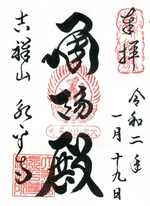 奉拝
令和二年
一月十九日
承陽殿
吉祥山 永平寺